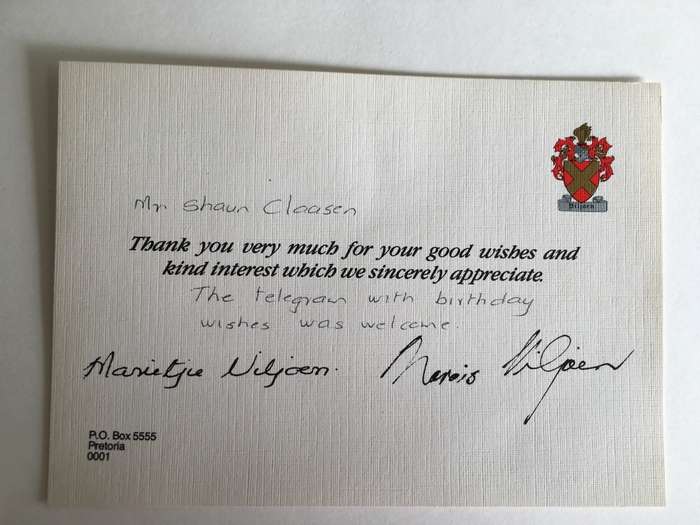 Viljoen
Mr Shaun Claasen
Thank you very much for your good wishes and
kind interest which we sincerely appreciate.
The telegram with birthday
wishes was welcome.
Marietjie Viljoen. Marais Viljoen
P.O. Box 5555
Pretoria
0001